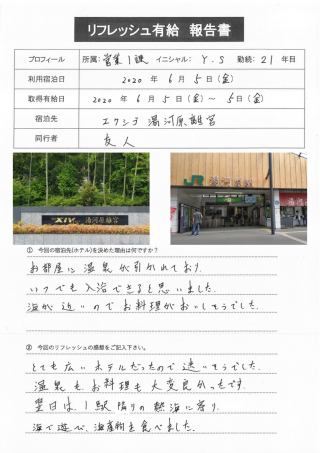 リフレッシュ有給 報告書
プロフィール 所属: 営業1課 イニシャル: Y.S 勤続: 21 年目
利用宿泊日 2020 年 6 月 5 日 (金)
取得有給日 2020 年 6 月 5 日 (金) ~ 5日 (金)
宿泊先 エクシブ 湯河原離宮
同行者 友人
XIV 湯河原離宮
JR 湯河原駅
① 今回の宿泊先(ホテル)を決めた理由は何ですか?
お部屋に温泉が引かれており、
いつでも入浴できると思いました。
海が近いのでお料理がおいしそうでした。
② 今回のリフレッシュの感想をご記入下さい。
とても広いホテルだったので迷いそうでした。
温泉もお料理も大変良かったです。
翌日は、1駅隣りの熱海に寄り、
海で遊び、海産物を食べました。